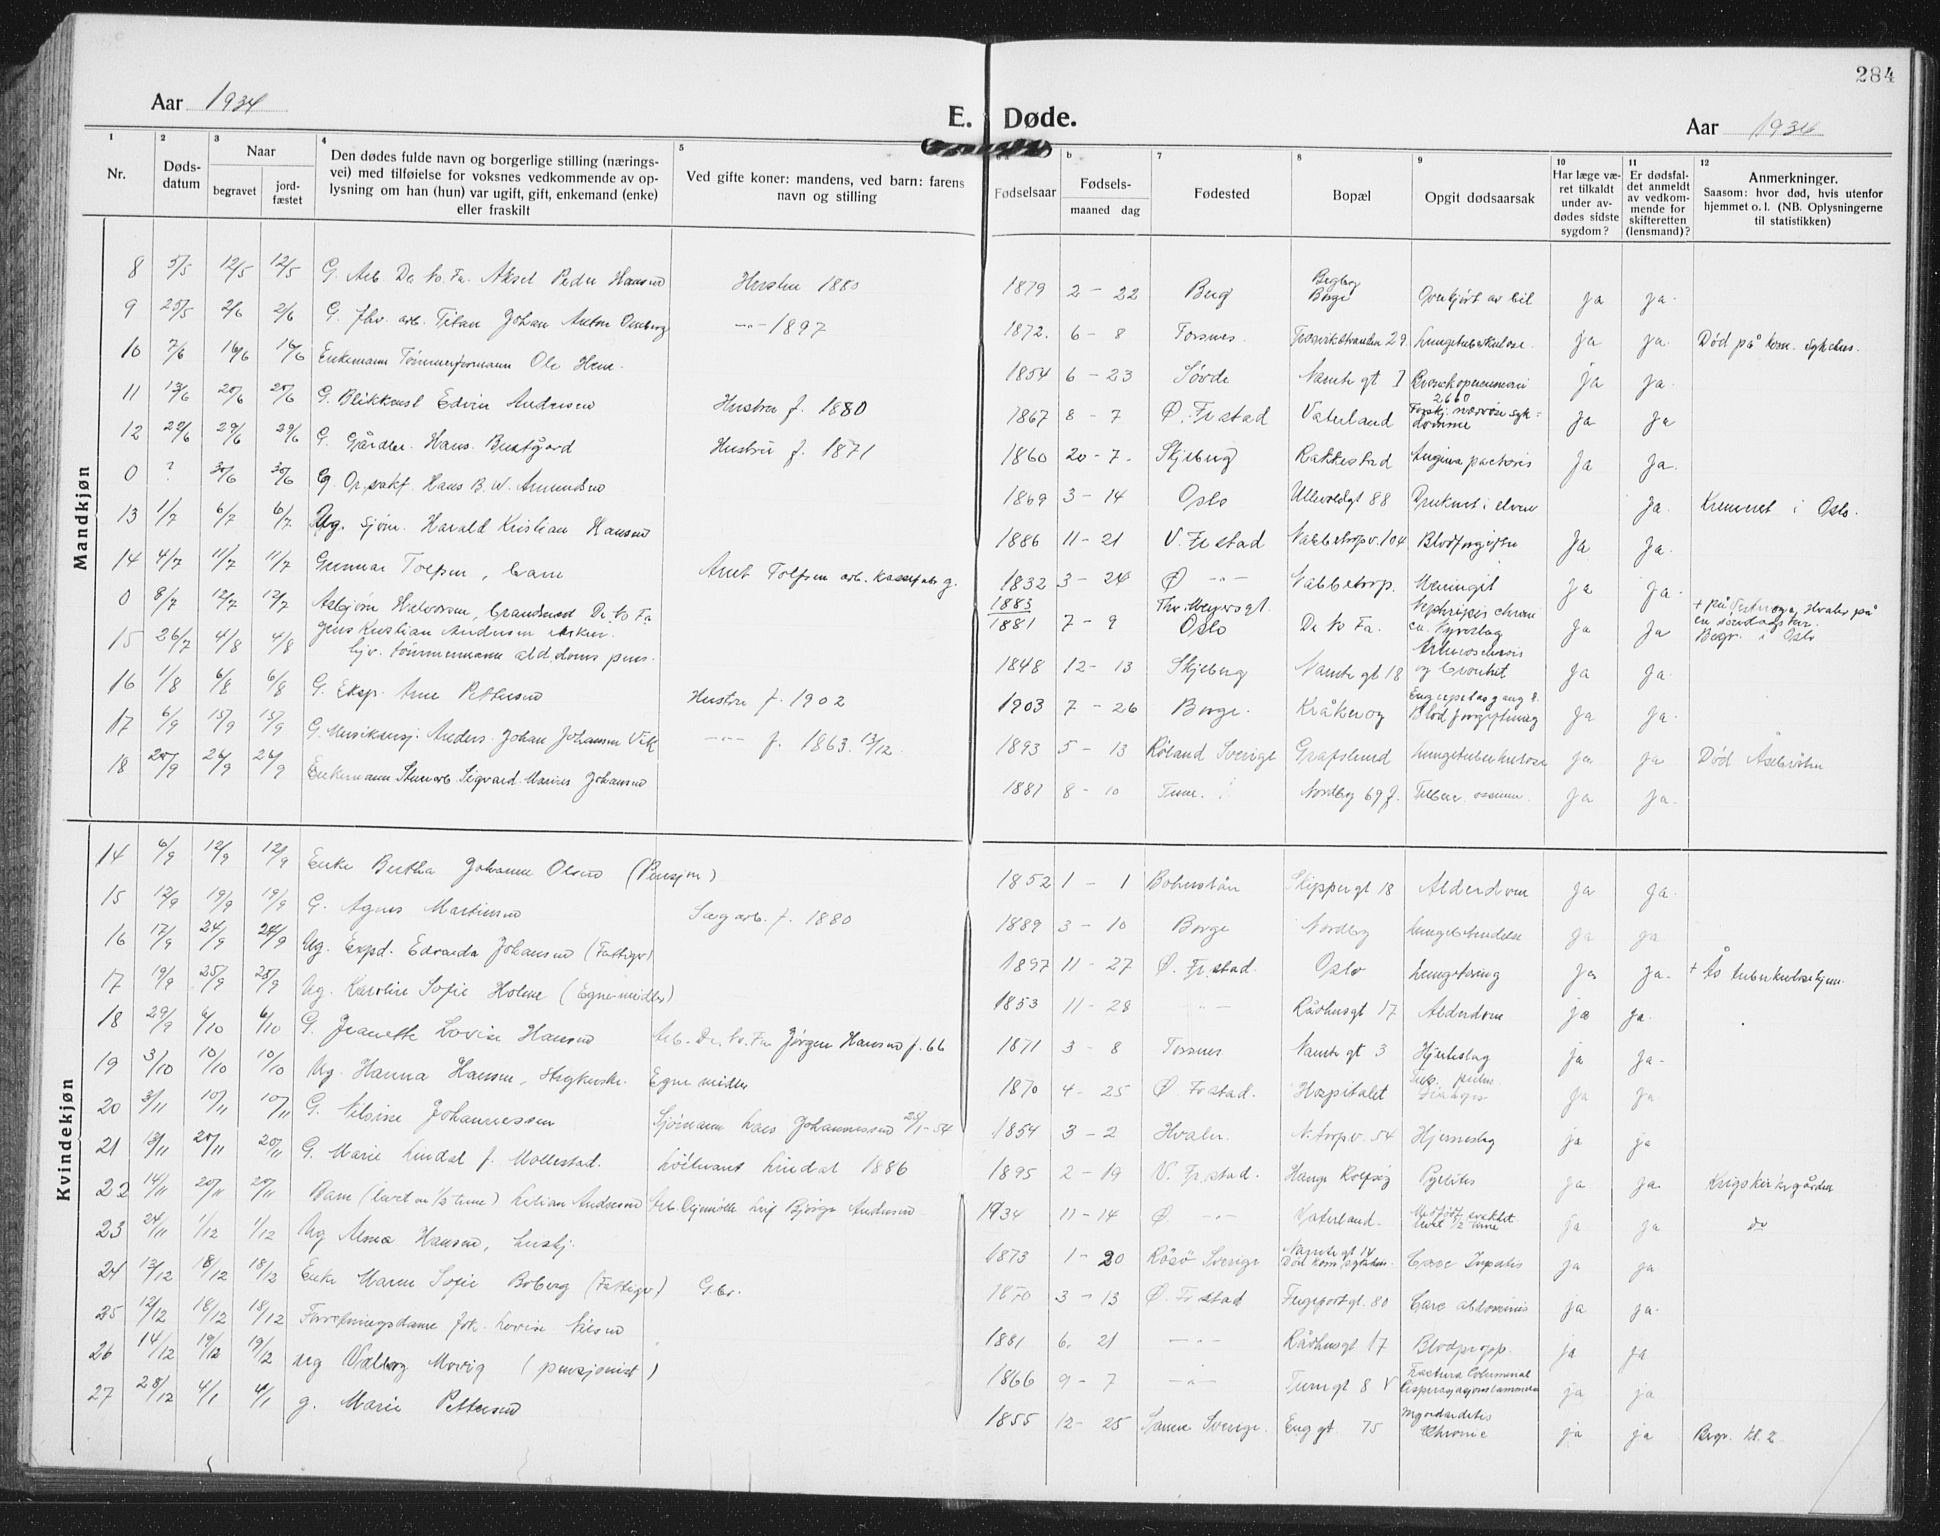 284
Aar 1934
E. Døde.
Aar 1934
1 2 3 4 5 6 7 8 9 10 11 12
Nr.
Døds-
datum
Naar
begravet
jord-
fæstet
Den dødes fulde navn og borgerlige stilling (nærings-
vei) med tilføielse for voksnes vedkommende av op-
lysning om han (hun) var ugift, gift, enkemand (enke)
eller fraskilt
Ved gifte koner: mandens, ved barn: farens
navn og stilling
Fødselsaar
Fødsels-
maaned dag
Fødested
Bopæl
Opgit dødsaarsak
Har læge væ-
ret tilkaldt
under av-
dødes sidste
sygdom?
Er dødsfal-
det anmeldt
av vedkom-
mende for
skifteretten
(lensmand)?
Anmerkninger.
Saasom: hvor død, hvis utenfor
hjemmet o. l. (NB. Oplysningerne
til statistikken)
Mandkjøn
8 5/5 12/5 12/5 G. Arb. De No. Fa. Aksel Peder Hansen Hustru 1880 1879 2 - 22 Berg Begby Borge Overkjørt av bil ja ja.
9 25/5 2/6 2/6 G. fhv. arb. Titan Johan Anton -"- 1897 1872. 6 - 8 Torsnes. 29. Lungetuberkulose. ja ja. Død på kom. sykehus.
10 7/6 16/6 16/6 Enkemann Tømmerformann Ole 1854 6 - 23 Namte gt 7 ja ja.
11 13/6 20/6 20/6 G. Blikkensl Edvin Andersen Hustru f. 1880 1867 8 - 7 Ø. Fr.stad Vaterland Forskj. nervøse syk-
domme ja ja
12 22/6 29/6 29/6 G. Gårdbr. Hans Hustru f. 1871 1860 20 - 7. Skjeberg Rakkestad Angina pectoris ja ja.
0 ? 30/6 30/6 G. O.r.sakf. Hans B. W. Amundsen 1869 3 - 14 Oslo Ullevoldgt 88 Druknet i elven ja. Kremeret i Oslo.
13 1/7 6/7 6/7 Ug. sjøm. Harald Kristian Hansen 1886 11 - 21 V. Fr.stad Nabbetorpv. 104 Blodforgiftn ja ja.
14 4/7 11/7 11/7 Gunnar Tolfsen, barn Arnt Tolfsen arb. kassefabr g. 1832 3 - 24 Ø -"- Nabbetorp. Meningit ja ja.
0 8/7 12/7 12/7 Asbjørn Halvorsen, brandmed De No Fa 1883
1881 7 - 9 Thv. Meyersgt.
Oslo De No Fa. ja ja + på Hvaler på
en søndagstur.
Begr. i Oslo
15 26/7 4/8 4/8 Jens Kristian Andersen
fhv. tømmermann ald.doms pens. 1848 12 - 13 Skjeberg Namte gt 18 ja ja.
16 1/8 6/8 6/8 G. Eksp. Arne Pettersen Hustru f. 1902 1903 7 - 26 Borge. Kråkerøy Blodforgiftning ja ja.
17 6/9 15/9 15/9 G. Anders Johan Johansen Vik -"- f. 1863 13/12. 1893 5 - 13 Sverige Lungetuberkulose ja ja Død
18 20/9 26/9 26/9 Enkemann Stenarb. Sigvard Marius Johansen 1881 8 - 10 Tune. Nordby 69 f. ja ja.
Kvindekjøn
14 6/9 12/9 12/9 Enke Bertha Johanne Olsen (Pensjon) 1852 1 - 1 Bohuslän Skippergt 18 Alderdom ja ja.
15 12/9 19/9 19/9 G. Agnes Martinsen Sagarb. f. 1880 1889 3 - 10 Borge Nordby Lungebetendelse ja ja
16 17/9 24/9 24/9 Ug. Expd. Edvarda Johansen (Fattigv) 1897 11 - 27 Ø. Fr.stad. Oslo ja ja. + Ås tuberkulosehjem.
17 19/9 25/9 25/9 Ug. Karoline Sofie Holme (Egne midler) 1853 11 - 28 -"- Rådhusgt 17 Alderdom ja ja.
18 29/9 6/10 6/10 G. Jeanette Lovise Hansen Arb. De. No. Fa Jørgen Hansen f. 66 1871 3 - 8 Torsnes Namte gt 3 Hjerteslag ja ja.
19 3/10 10/10 10/10 Ug. Hanna Hansen, Strykerske. Egne midler 1870 4 - 25 Ø. Fr.stad. Hospitalet ja ja.
20 3/11 10/11 10/11 G. Nilsine Johannessen Sjømann Lars Johannessen 25/1-54 1854 3 - 2 Hvaler. N.torpv. 54 Hjerneslag ja ja
21 13/11 20/11 20/11 G. Marie Lindal f. Mollestad. Løitnant Lindal 1886 1895 2 - 19 V. Fr.stad. Hauge Rolfsøy Pyelitis ja ja. Krigskirkegården
22 14/11 20/11 20/11 Barn (levet en 1/2 time) Lilian Andersen Arb. Leif Bjørge Andersen 1934 11 - 14 Ø. -"- Vaterland. Medfødt svakhet
levet 1/2 time ja ja do
23 24/11 1/12 1/12 Ug Alma Hansen, husbj. 1873 1 - 20 Sverige Namte gt 14 Cancer ja ja
24 13/12 18/12 18/12 Enke Maren Sofie Boberg (Fattigv) G.br. 1870 3 - 13 Ø. Fr.stad Færgeportgt. 80 Canc abdominis ja ja.
25 12/12 18/12 18/12 Forretningsdame Joh. Lovise Nilsen 1881 6. 21 -"- Rådhusgt 17 Blodpropp. ja ja
26 14/12 19/12 19/12 Ug Valborg Movig (pensjonist) 1866 9 - 7 -"- Turngt 8 V ja ja
27 28/12 4/1 4/1 g. Marie Pettersen 1855 12 - 25 Sverige. Enggt 75 Myocarditis
Chronic ja ja Begr. kl. 2